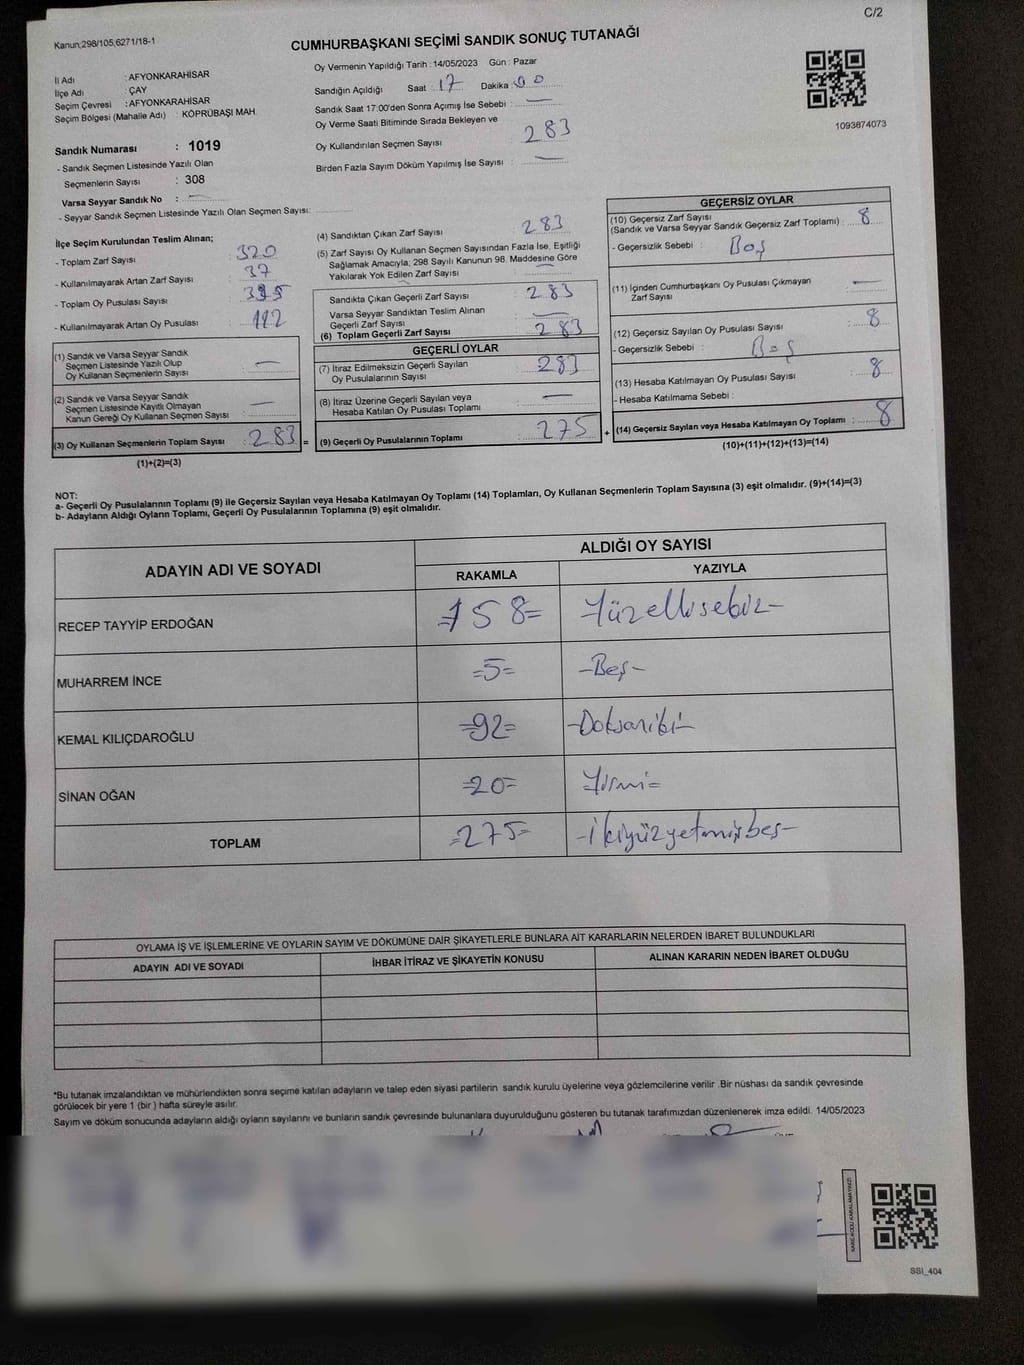 C/2
Kanun;298/105,6271/18-1
CUMHURBAŞKANI SEÇİMİ SANDIK SONUÇ TUTANAĞI
İl Adı : AFYONKARAHİSAR
İlçe Adı : ÇAY
Seçim Çevresi : AFYONKARAHİSAR
Seçim Bölgesi (Mahalle Adı) : KÖPRÜBAŞI MAH.
Sandık Numarası : 1019
- Sandık Seçmen Listesinde Yazılı Olan
Seçmenlerin Sayısı : 308
Varsa Seyyar Sandık No :
- Seyyar Sandık Seçmen Listesinde Yazılı Olan Seçmen Sayısı:
Oy Vermenin Yapıldığı Tarih : 14/05/2023 Gün : Pazar
Sandığın Açıldığı Saat : 17 Dakika : 00
Sandık Saat 17:00'den Sonra Açımış İse Sebebi : —
Oy Verme Saati Bitiminde Sırada Bekleyen ve
Oy Kullandırılan Seçmen Sayısı : 283
Birden Fazla Sayım Döküm Yapılmış İse Sayısı : —
1093874073
İlçe Seçim Kurulundan Teslim Alınan;
- Toplam Zarf Sayısı : 320
- Kullanılmayarak Artan Zarf Sayısı : 37
- Toplam Oy Pusulası Sayısı :
- Kullanılmayarak Artan Oy Pusulası : 112
(1) Sandık ve Varsa Seyyar Sandık
Seçmen Listesinde Yazılı Olup
Oy Kullanan Seçmenlerin Sayısı : —
(2) Sandık ve Varsa Seyyar Sandık
Seçmen Listesinde Kayıtlı Olmayan
Kanun Gereği Oy Kullanan Seçmen Sayısı : —
(3) Oy Kullanan Seçmenlerin Toplam Sayısı : 283 =
(1)+(2)=(3)
(4) Sandıktan Çıkan Zarf Sayısı : 283
(5) Zarf Sayısı Oy Kullanan Seçmen Sayısından Fazla İse, Eşitliği
Sağlamak Amacıyla; 298 Sayılı Kanunun 98. Maddesine Göre
Yakılarak Yok Edilen Zarf Sayısı : —
Sandıkta Çıkan Geçerli Zarf Sayısı : 283
Varsa Seyyar Sandıktan Teslim Alınan
Geçerli Zarf Sayısı : —
(6) Toplam Geçerli Zarf Sayısı : 283
GEÇERLİ OYLAR
(7) İtiraz Edilmeksizin Geçerli Sayılan
Oy Pusulalarının Sayısı : 283
(8) İtiraz Üzerine Geçerli Sayılan veya
Hesaba Katılan Oy Pusulası Toplamı : —
(9) Geçerli Oy Pusulalarının Toplamı : 275 +
GEÇERSİZ OYLAR
(10) Geçersiz Zarf Sayısı
(Sandık ve Varsa Seyyar Sandık Geçersiz Zarf Toplamı) : 8
- Geçersizlik Sebebi : Boş
(11) İçinden Cumhurbaşkanı Oy Pusulası Çıkmayan
Zarf Sayısı : —
(12) Geçersiz Sayılan Oy Pusulası Sayısı : 8
- Geçersizlik Sebebi : Boş
(13) Hesaba Katılmayan Oy Pusulası Sayısı : 8
- Hesaba Katılmama Sebebi :
(14) Geçersiz Sayılan veya Hesaba Katılmayan Oy Toplamı : 8
(10)+(11)+(12)+(13)=(14)
NOT:
a- Geçerli Oy Pusulalarının Toplamı (9) ile Geçersiz Sayılan veya Hesaba Katılmayan Oy Toplamı (14) Toplamları, Oy Kullanan Seçmenlerin Toplam Sayısına (3) eşit olmalıdır. (9)+(14)=(3)
b- Adayların Aldığı Oyların Toplamı, Geçerli Oy Pusulalarının Toplamına (9) eşit olmalıdır.
ADAYIN ADI VE SOYADI ALDIĞI OY SAYISI
RAKAMLA YAZIYLA
RECEP TAYYİP ERDOĞAN =158= Yüzellisekiz-
MUHARREM İNCE =5= -Beş-
KEMAL KILIÇDAROĞLU =92= -Doksaniki-
SİNAN OĞAN =20= Yirmi=
TOPLAM =275= -İkiyüzyetmişbeş-
OYLAMA İŞ VE İŞLEMLERİNE VE OYLARIN SAYIM VE DÖKÜMÜNE DAİR ŞİKAYETLERLE BUNLARA AİT KARARLARIN NELERDEN İBARET BULUNDUKLARI
ADAYIN ADI VE SOYADI İHBAR İTİRAZ VE ŞİKAYETİN KONUSU ALINAN KARARIN NEDEN İBARET OLDUĞU
*Bu tutanak imzalandıktan ve mühürlendikten sonra seçime katılan adayların ve talep eden siyasi partilerin sandık kurulu üyelerine veya gözlemcilerine verilir .Bir nüshası da sandık çevresinde
görülecek bir yere 1 (bir ) hafta süreyle asılır.
Sayım ve döküm sonucunda adayların aldığı oyların sayılarını ve bunların sandık çevresinde bulunanlara duyurulduğunu gösteren bu tutanak tarafımızdan düzenlenerek imza edildi. 14/05/2023
KAREKODU KARALAMAYINIZ!
SSI_404